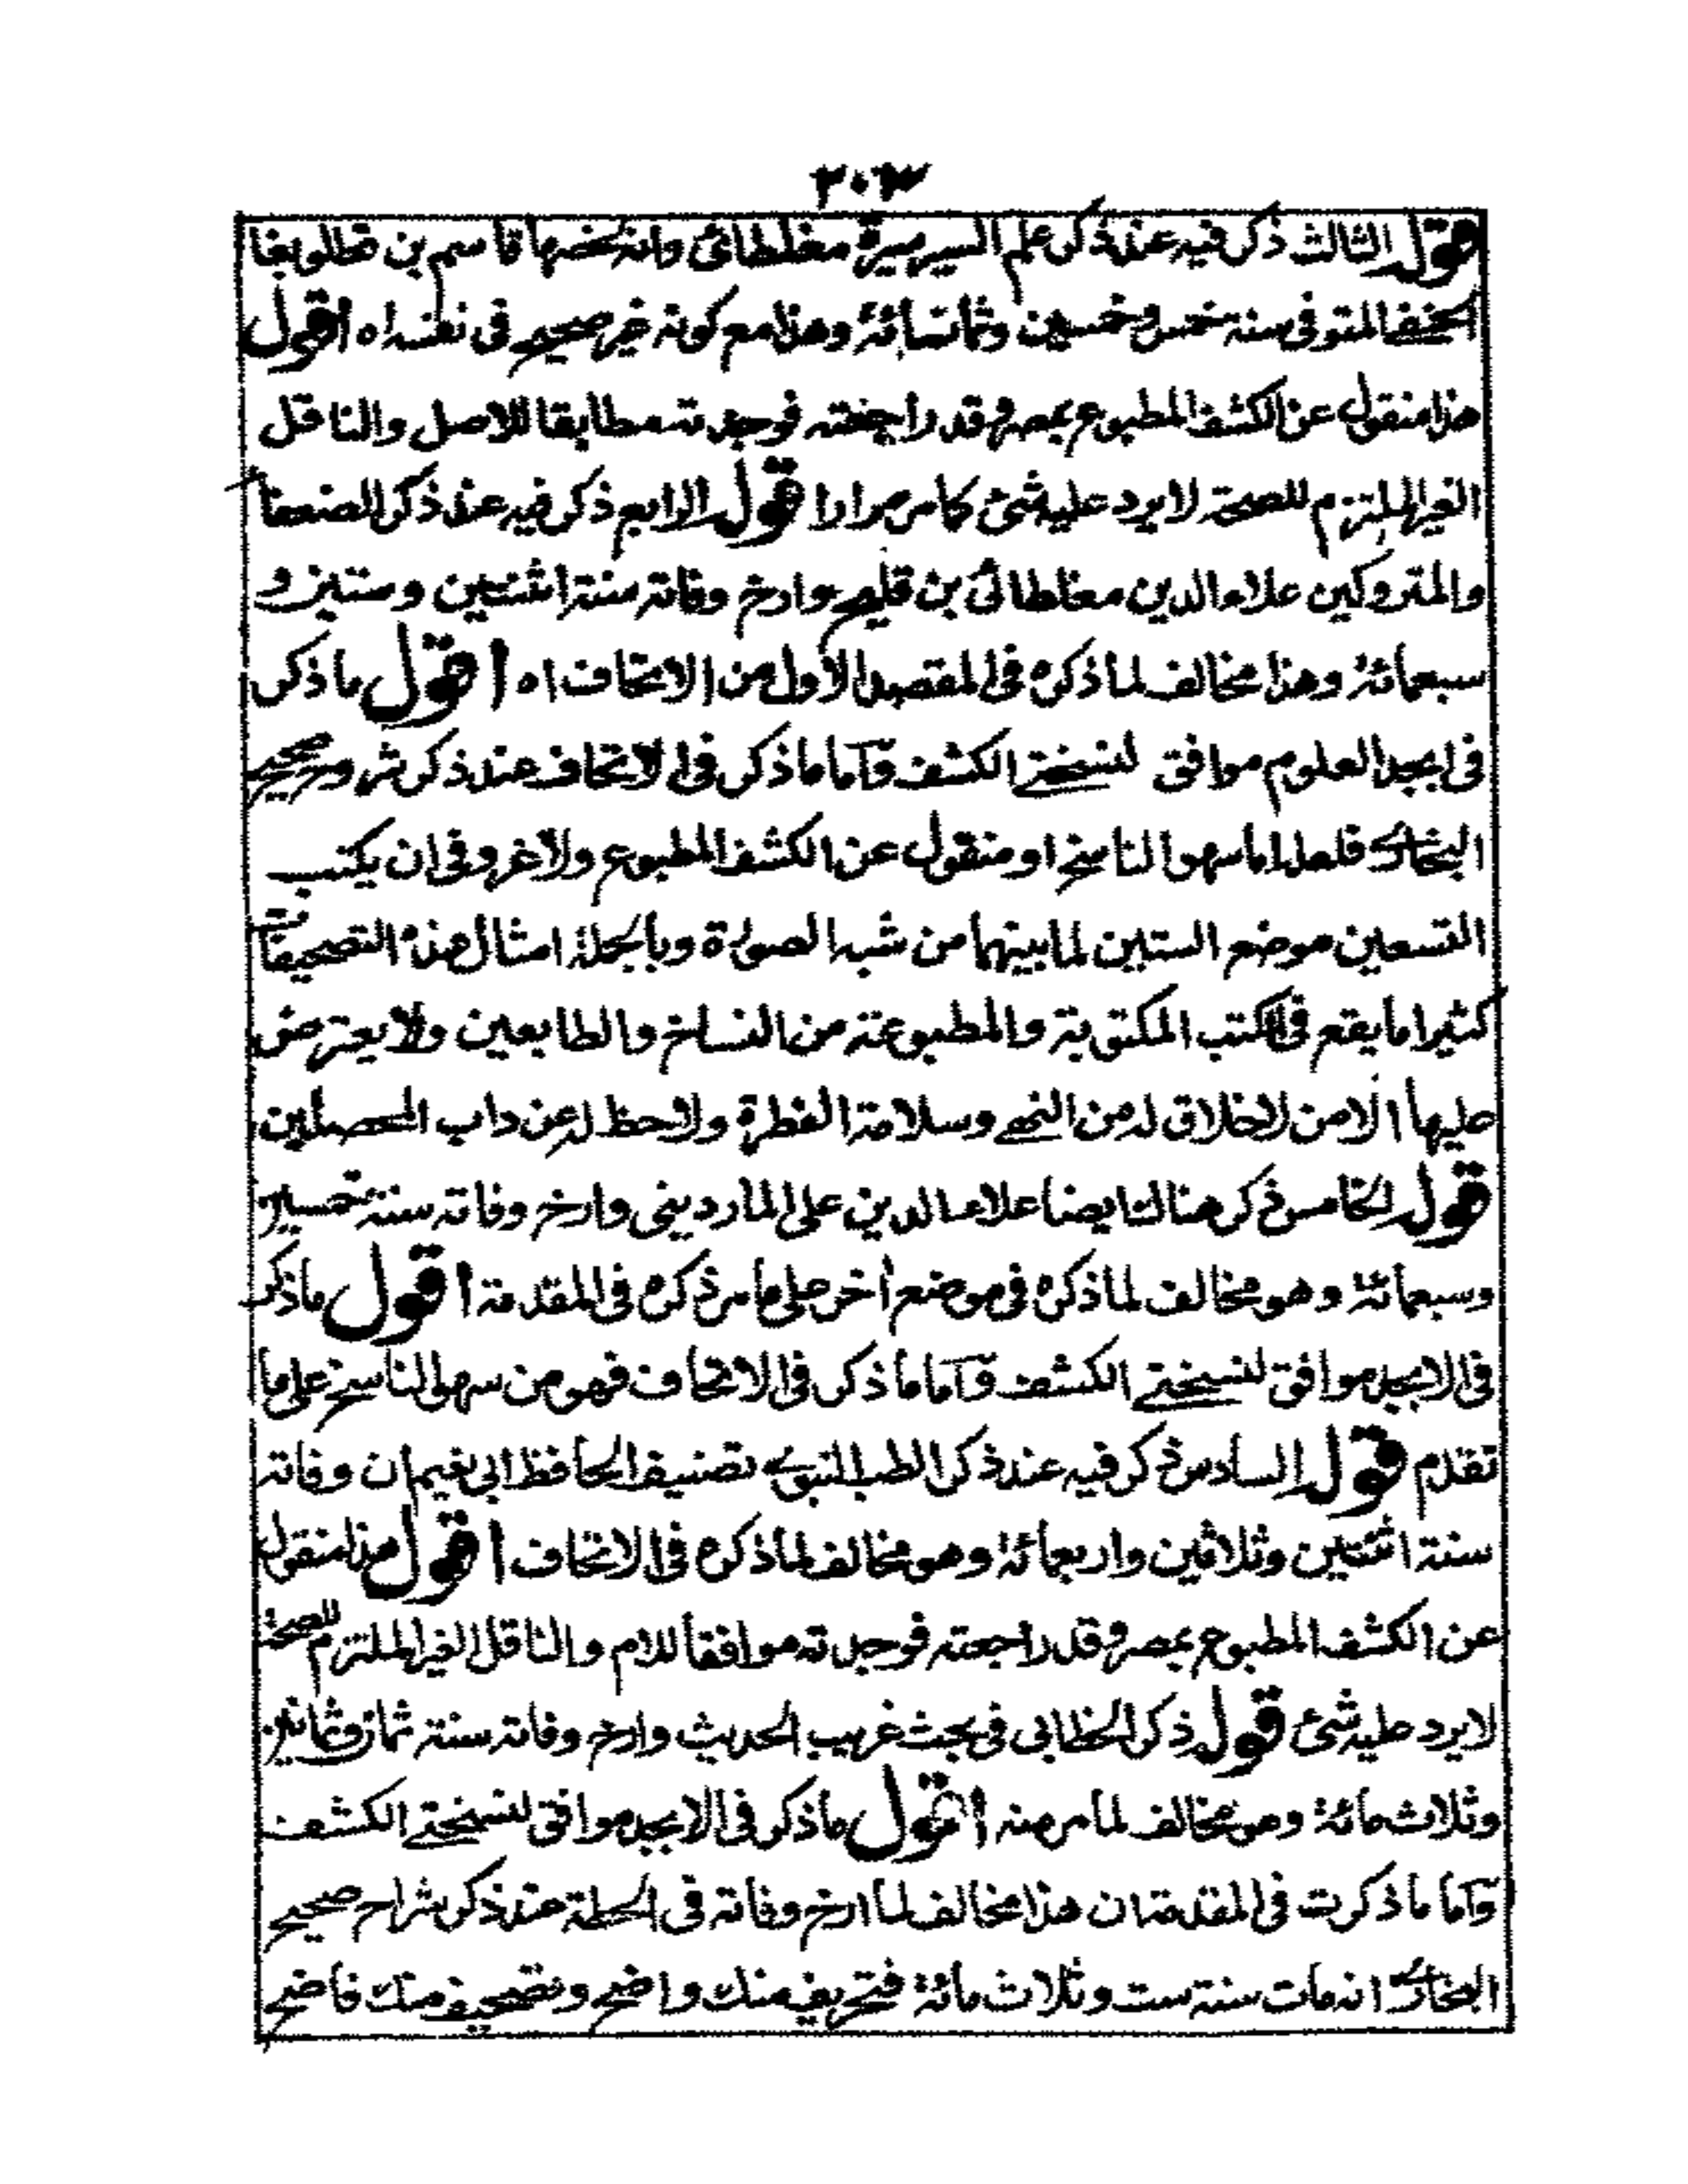 ٣٠٣
قول الثالث ذكر فيه عند ذكر علم السير سيرة مغلطائى وانه لخصها قاسم بن قطلوبغا
الحنفے المتوفى سنة خمس وخمسين وثمانمائة وهذا مع كونه غير صحيح فى نفسه اه اقول
هذا منقول عن الكشف المطبوع بمصر وقد راجعته فوجدته مطابقا للاصل والناقل
الغير الملتزم للصحة لا يرد عليه شئ كما مر مرارا قول الرابع ذكر فيه عند ذكر الضعفأ
والمتروكين علاء الدين مغلطائى بن قليج وارخ وفاته سنة اثنتين وستين و
سبعمائة وهذا مخالف لما ذكره فى المقصد الاول من الاتحاف اه اقول ما ذكر
فى ابجد العلوم موافق لنسختے الكشف وآما ما ذكر فى الاتحاف عند ذكر شروح صحيح
البخارى فلعله اما سهو الناسخ او منقول عن الكشف المطبوع ولا غرو فى ان يكتب
التسعين موضع الستين لما بينهما من شبه الصورة وبالجملة امثال هذه التصحيفات
كثيرا ما يقع فى الكتب المكتوبة والمطبوعة من النساخ والطابعين ولا يعترض
عليها الا من لا خلاق له من النهے وسلامة الفطرة ولا حظ له عن داب المحصلين
قول الخامس ذكر هنالك ايضا علاء الدين على الماردينى وارخ وفاته سنة خمسين
وسبعمائة وهو مخالف لما ذكره فى موضع اخر على ما مر ذكره فى المقدمة اقول ما ذكر
فى الابجد موافق لنسختے الكشف وآما ما ذكر فى الاتحاف فهو من سهو الناسخ على ما
تقدم قول السادس ذكر فيه عند ذكر الطب النبوے تصنيف الحافظ ابى نعيم ان وفاته
سنة اثنتين وثلاثين واربعمائة وهو مخالف لما ذكره فى الاتحاف اقول هذا منقول
عن الكشف المطبوع بمصر وقد راجعته فوجدته موافقا للام والناقل الغير الملتزم للصحة
لا يرد عليه شئ قول ذكر الخطابى فى بحث غريب الحديث وارخ وفاته سنة ثمان وثمانين
وثلاث مائة وهو مخالف لما مر منه اقول ما ذكر فى الابجد موافق لنسختے الكشف
وآما ما ذكرت فى المقدمة ان هذا مخالف لما ارخ وفاته فى الحطة عند ذكر شراح صحيح
البخارى انه مات سنة ست وثلاث مائة فتحريف منك واضح وتصحيف منك فاضح